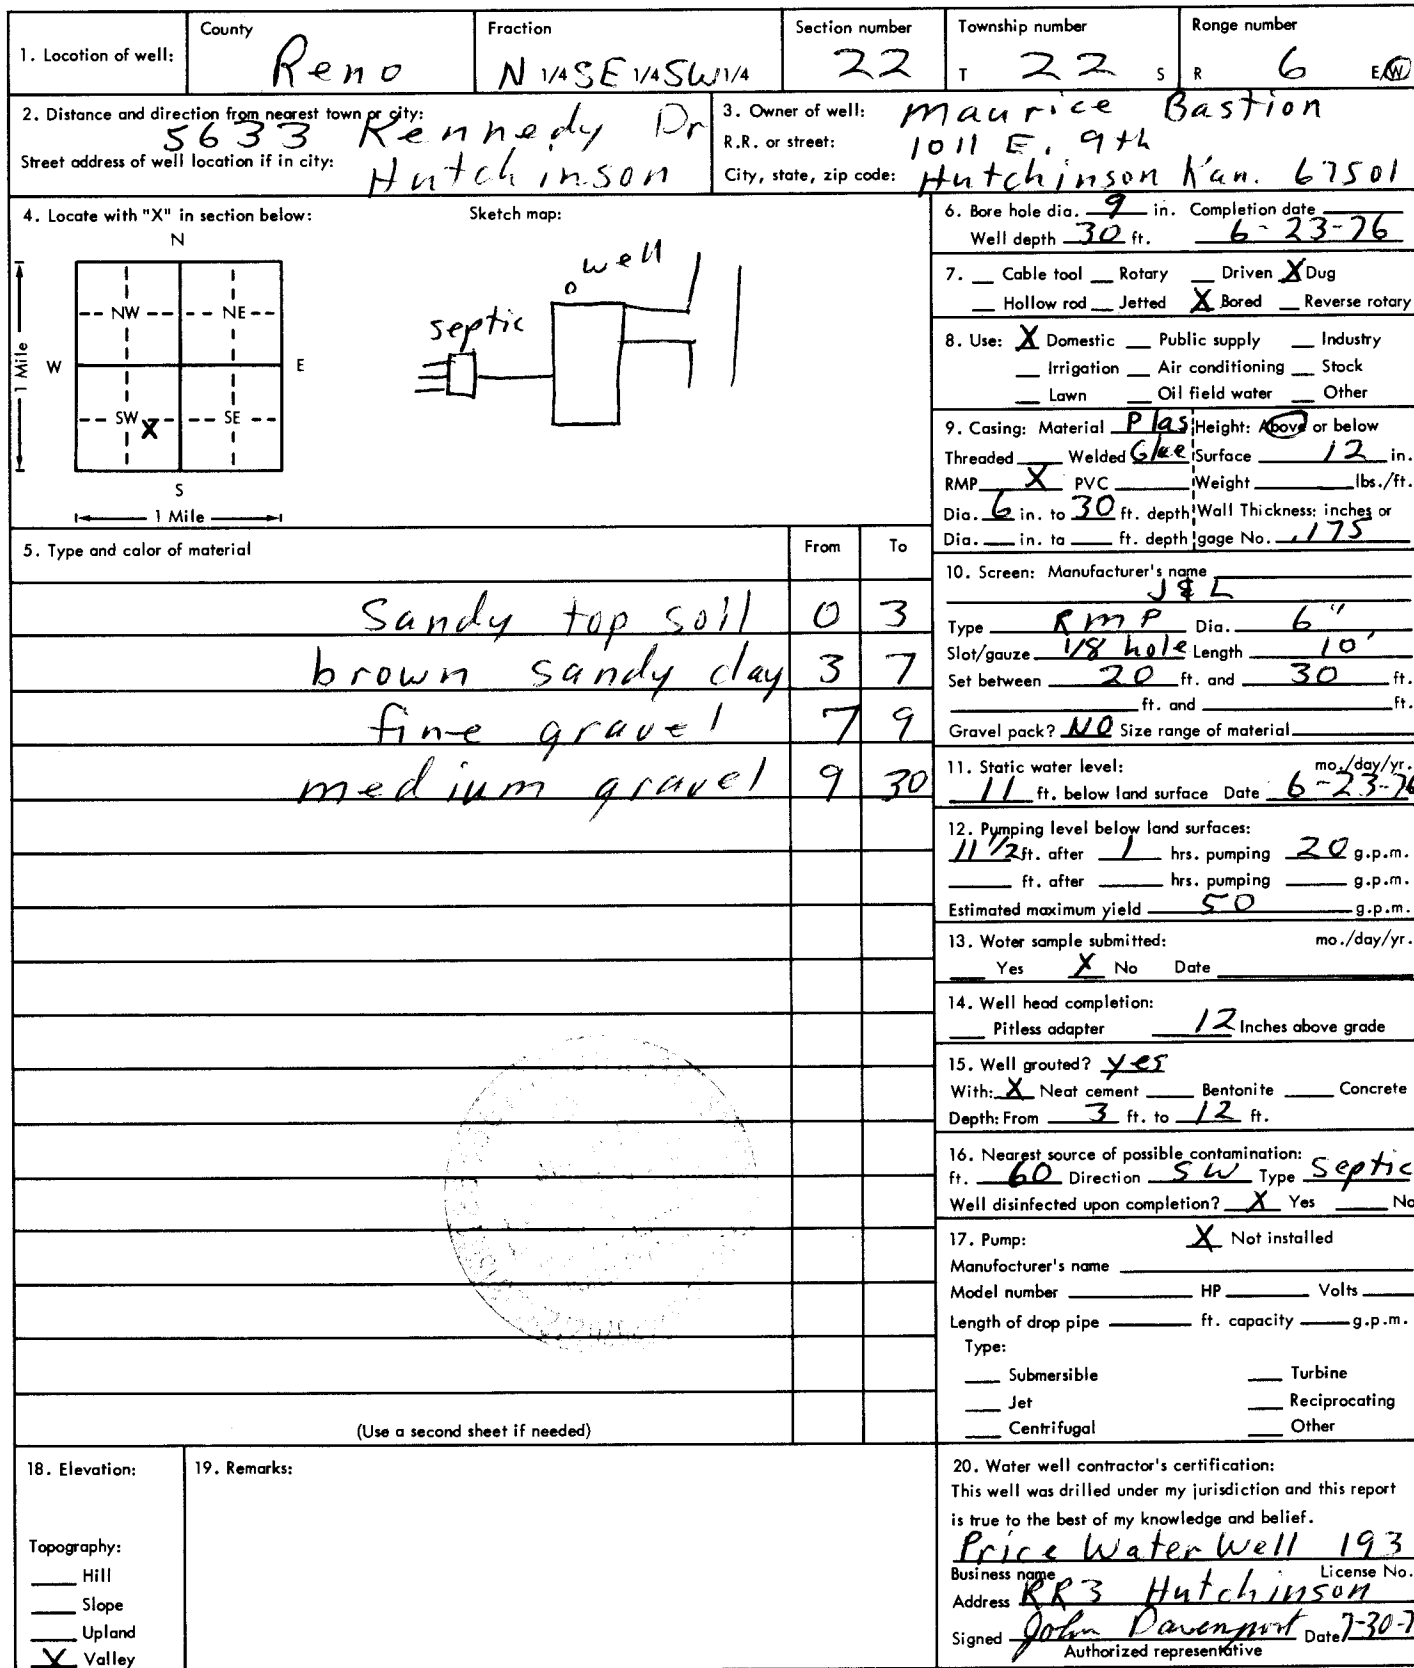 1. Location of well:
County
Reno
Fraction
N 1/4 SE 1/4 SW 1/4
Section number
22
Township number
T 22 S
Range number
R 6 E/W
2. Distance and direction from nearest town or city:
5633 Kennedy Dr
Street address of well location if in city:
Hutchinson
3. Owner of well: Maurice Bastion
R.R. or street: 1011 E. 9th
City, state, zip code: Hutchinson Kan. 67501
4. Locate with "X" in section below:
N
NW NE
W E
1 Mile
SW X SE
S
1 Mile
Sketch map:
well
septic
5. Type and color of material From To
Sandy top soil 0 3
brown sandy clay 3 7
fine gravel 7 9
medium gravel 9 30
(Use a second sheet if needed)
6. Bore hole dia. 9 in. Completion date
Well depth 30 ft. 6-23-76
7. __ Cable tool __ Rotary __ Driven X Dug
__ Hollow rod __ Jetted X Bored __ Reverse rotary
8. Use: X Domestic __ Public supply __ Industry
__ Irrigation __ Air conditioning __ Stock
__ Lawn __ Oil field water __ Other
9. Casing: Material Plas Height: Above or below
Threaded __ Welded Glue Surface 12 in.
RMP X PVC __ Weight __ lbs./ft.
Dia. 6 in. to 30 ft. depth Wall Thickness: inches or
Dia. __ in. to __ ft. depth gage No. .175
10. Screen: Manufacturer's name
J & L
Type RMP Dia. 6"
Slot/gauze 1/8 hole Length 10'
Set between 20 ft. and 30 ft.
__ ft. and __ ft.
Gravel pack? NO Size range of material
11. Static water level: mo./day/yr.
11 ft. below land surface Date 6-23-76
12. Pumping level below land surfaces:
11 1/2 ft. after 1 hrs. pumping 20 g.p.m.
__ ft. after __ hrs. pumping __ g.p.m.
Estimated maximum yield 50 g.p.m.
13. Water sample submitted: mo./day/yr.
__ Yes X No Date
14. Well head completion:
__ Pitless adapter 12 Inches above grade
15. Well grouted? yes
With: X Neat cement __ Bentonite __ Concrete
Depth: From 3 ft. to 12 ft.
16. Nearest source of possible contamination:
ft. 60 Direction SW Type Septic
Well disinfected upon completion? X Yes __ No
17. Pump: X Not installed
Manufacturer's name
Model number __ HP __ Volts __
Length of drop pipe __ ft. capacity __ g.p.m.
Type:
__ Submersible __ Turbine
__ Jet __ Reciprocating
__ Centrifugal __ Other
18. Elevation:
Topography:
__ Hill
__ Slope
__ Upland
X Valley
19. Remarks:
20. Water well contractor's certification:
This well was drilled under my jurisdiction and this report
is true to the best of my knowledge and belief.
Price Water Well 193
Business name License No.
Address RR3 Hutchinson
Signed John Davenport Date 7-30-7
Authorized representative